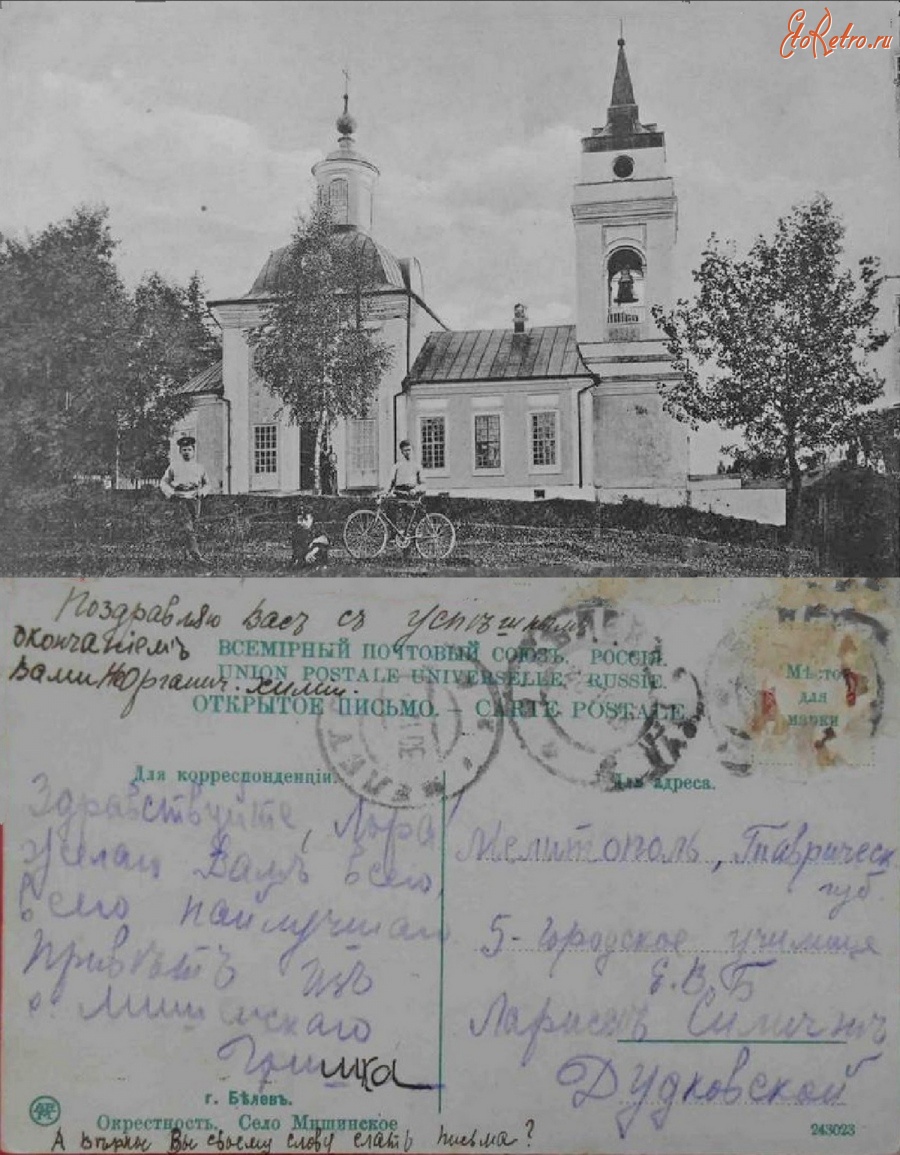 EtoRetro.ru
Поздравляю Васъ съ успѣшнымъ
окончаніемъ
Вами Неорганич. химіи.
ВСЕМІРНЫЙ ПОЧТОВЫЙ СОЮЗЪ. РОССІЯ.
UNION POSTALE UNIVERSELLE. RUSSIE.
ОТКРЫТОЕ ПИСЬМО. — CARTE POSTALE
Мѣсто
для
марки
Для корреспонденціи.
Здравствуйте, Лора!
Желаю Вамъ всего,
всего наилучшаго
Привѣтъ изъ
с. Мишенскаго
Гришка
г. Бѣлевъ.
Окрестность. Село Мишинское
А вѣрное Вы своему слову слать письма?
Для адреса.
Мелитополь, Таврическ
губ.
5-городское училище
Е.В.Б
Ларисѣ
Дудковской
243023